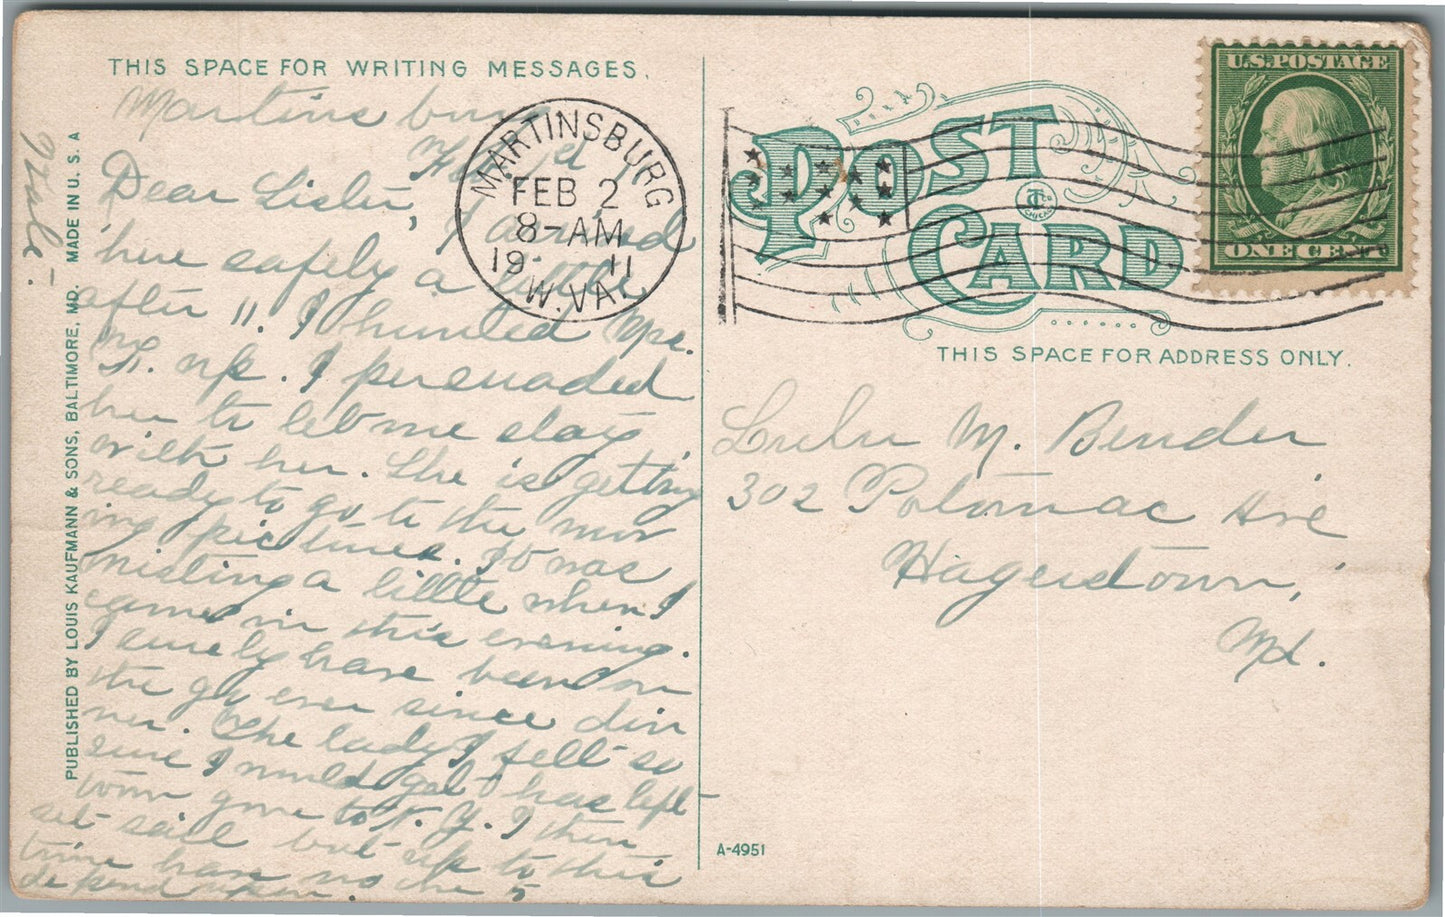 THIS SPACE FOR WRITING MESSAGES.
Martinsburg
Dear Sister, I arrived
here safely a little
after 11. I hunted Mrs.
up. I persuaded
her to let me stay
with her. She is getting
ready to go to the mov
ing pictures. It was
misting a little when I
came in this evening.
I surely have been on
the go ever since din
ner. The lady I felt so
sure I would get has left
town gone to N. Y. I then
set sail but up to this
time have no one to
depend upon.
PUBLISHED BY LOUIS KAUFMANN & SONS, BALTIMORE, MD. MADE IN U. S. A
MARTINSBURG
FEB 2
8-AM
19 11
W.VA.
POST
CARD
U.S. POSTAGE
ONE CENT
THIS SPACE FOR ADDRESS ONLY.
Lulu M. Bender
302 Potomac Ave
Hagerstown,
Md.
A-4951